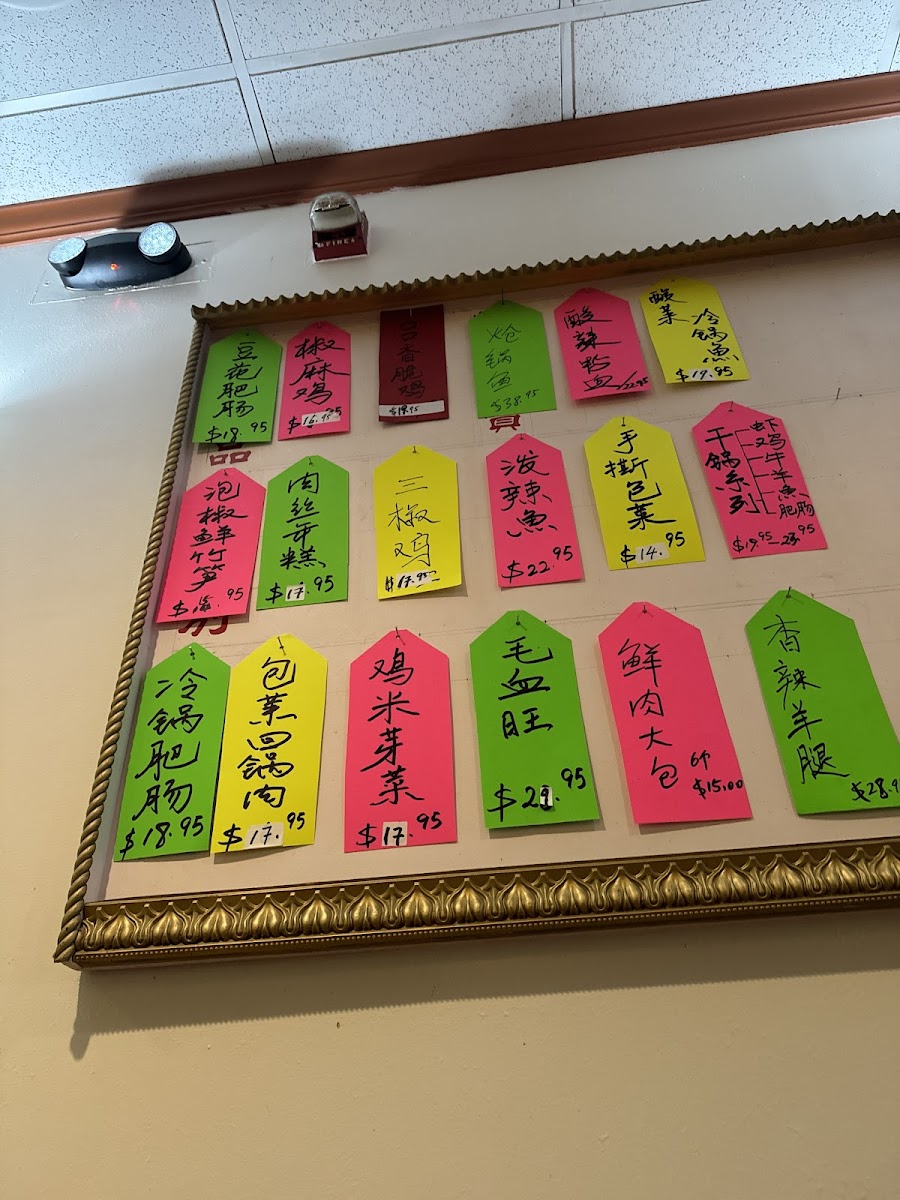 FIRE
豆花肥肠
$18.95
椒麻鸡
$16.95
口香脆鸡
$18.95
炝锅鱼
$38.95
酸辣粉血
22.95
酸菜
冷锅魚
$19.95
品
真
泡椒鲜竹笋
.95
肉丝年糕
$17.95
三椒鸡
$17.95
泼辣魚
$22.95
手撕包菜
$14.95
干锅系列
虾
鸡
牛
羊
魚
肥肠
$19.95-23.95
别
冷锅肥肠
$18.95
包菜回锅肉
$17.95
鸡米芽菜
$17.95
毛血旺
$29.95
鲜肉大包
6个
$15.00
香辣羊腿
$28.9